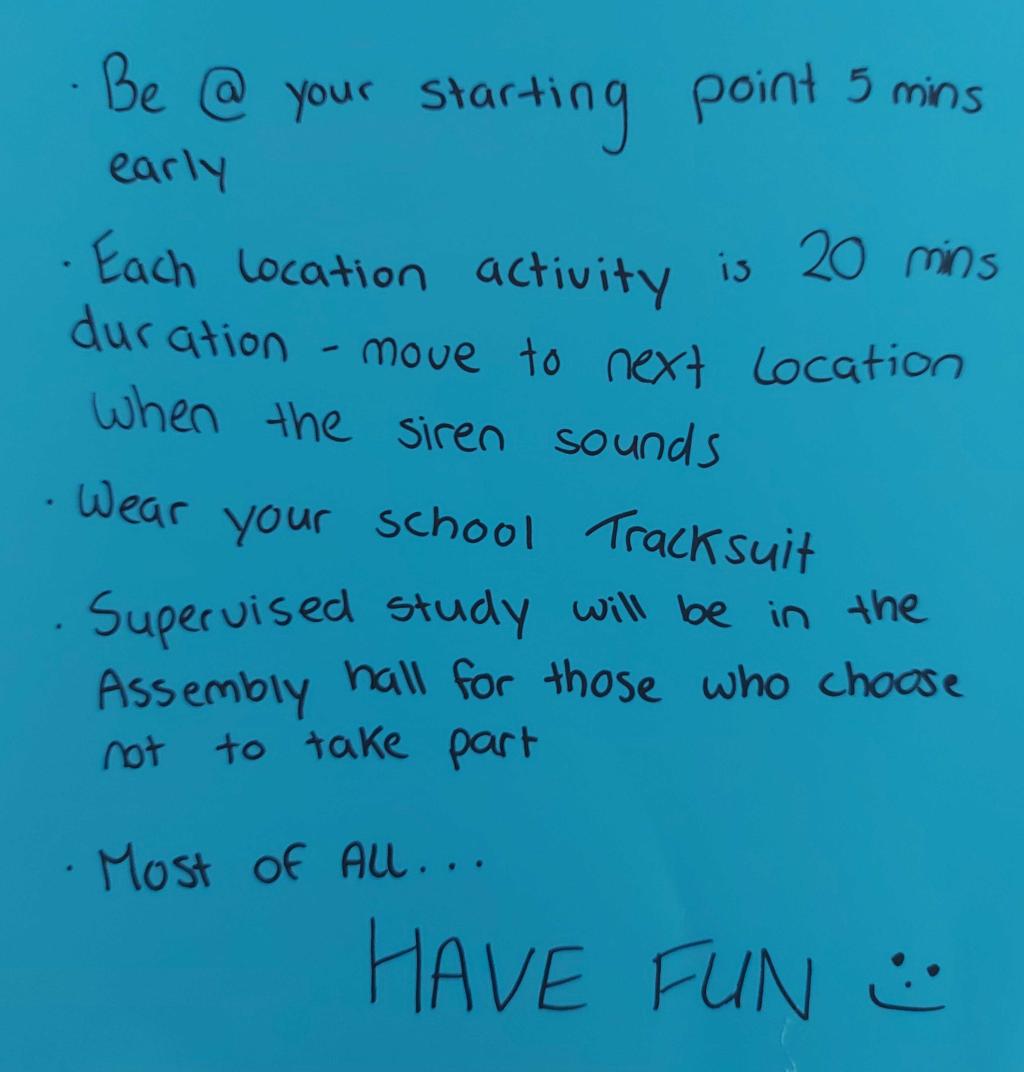 · Be @ your starting point 5 mins
early
· Each location activity is 20 mins
duration - move to next location
when the siren sounds
· Wear your school Tracksuit
· Supervised study will be in the
Assembly hall for those who choose
not to take part
· Most of All...
HAVE FUN